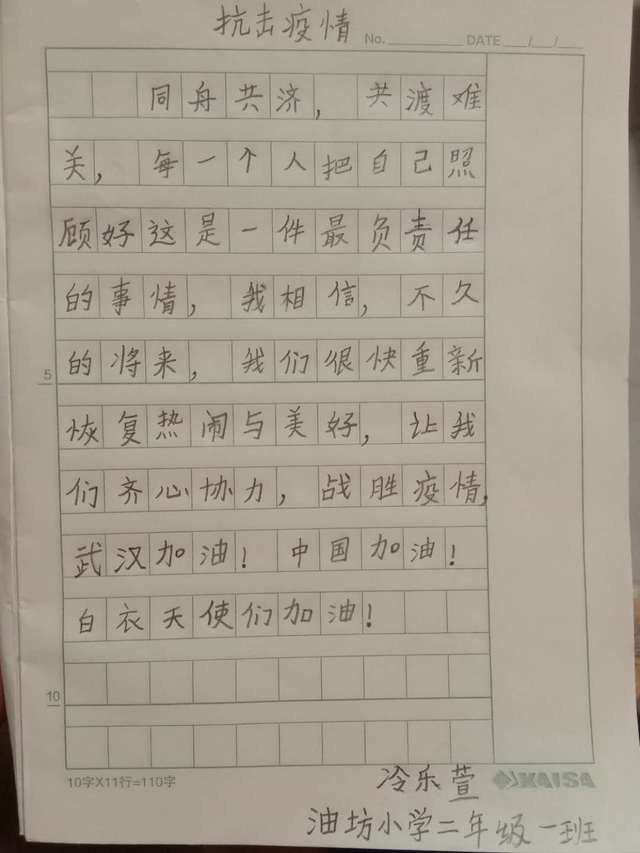 抗击疫情
No. DATE / /
同舟共济，共渡难
关，每一个人把自己照
顾好这是一件最负责任
的事情，我相信，不久
的将来，我们很快重新
5
恢复热闹与美好，让我
们齐心协力，战胜疫情，
武汉加油！中国加油！
白衣天使们加油！
10
10字X11行=110字
冷乐萱
KAISA
油坊小学二年级一班